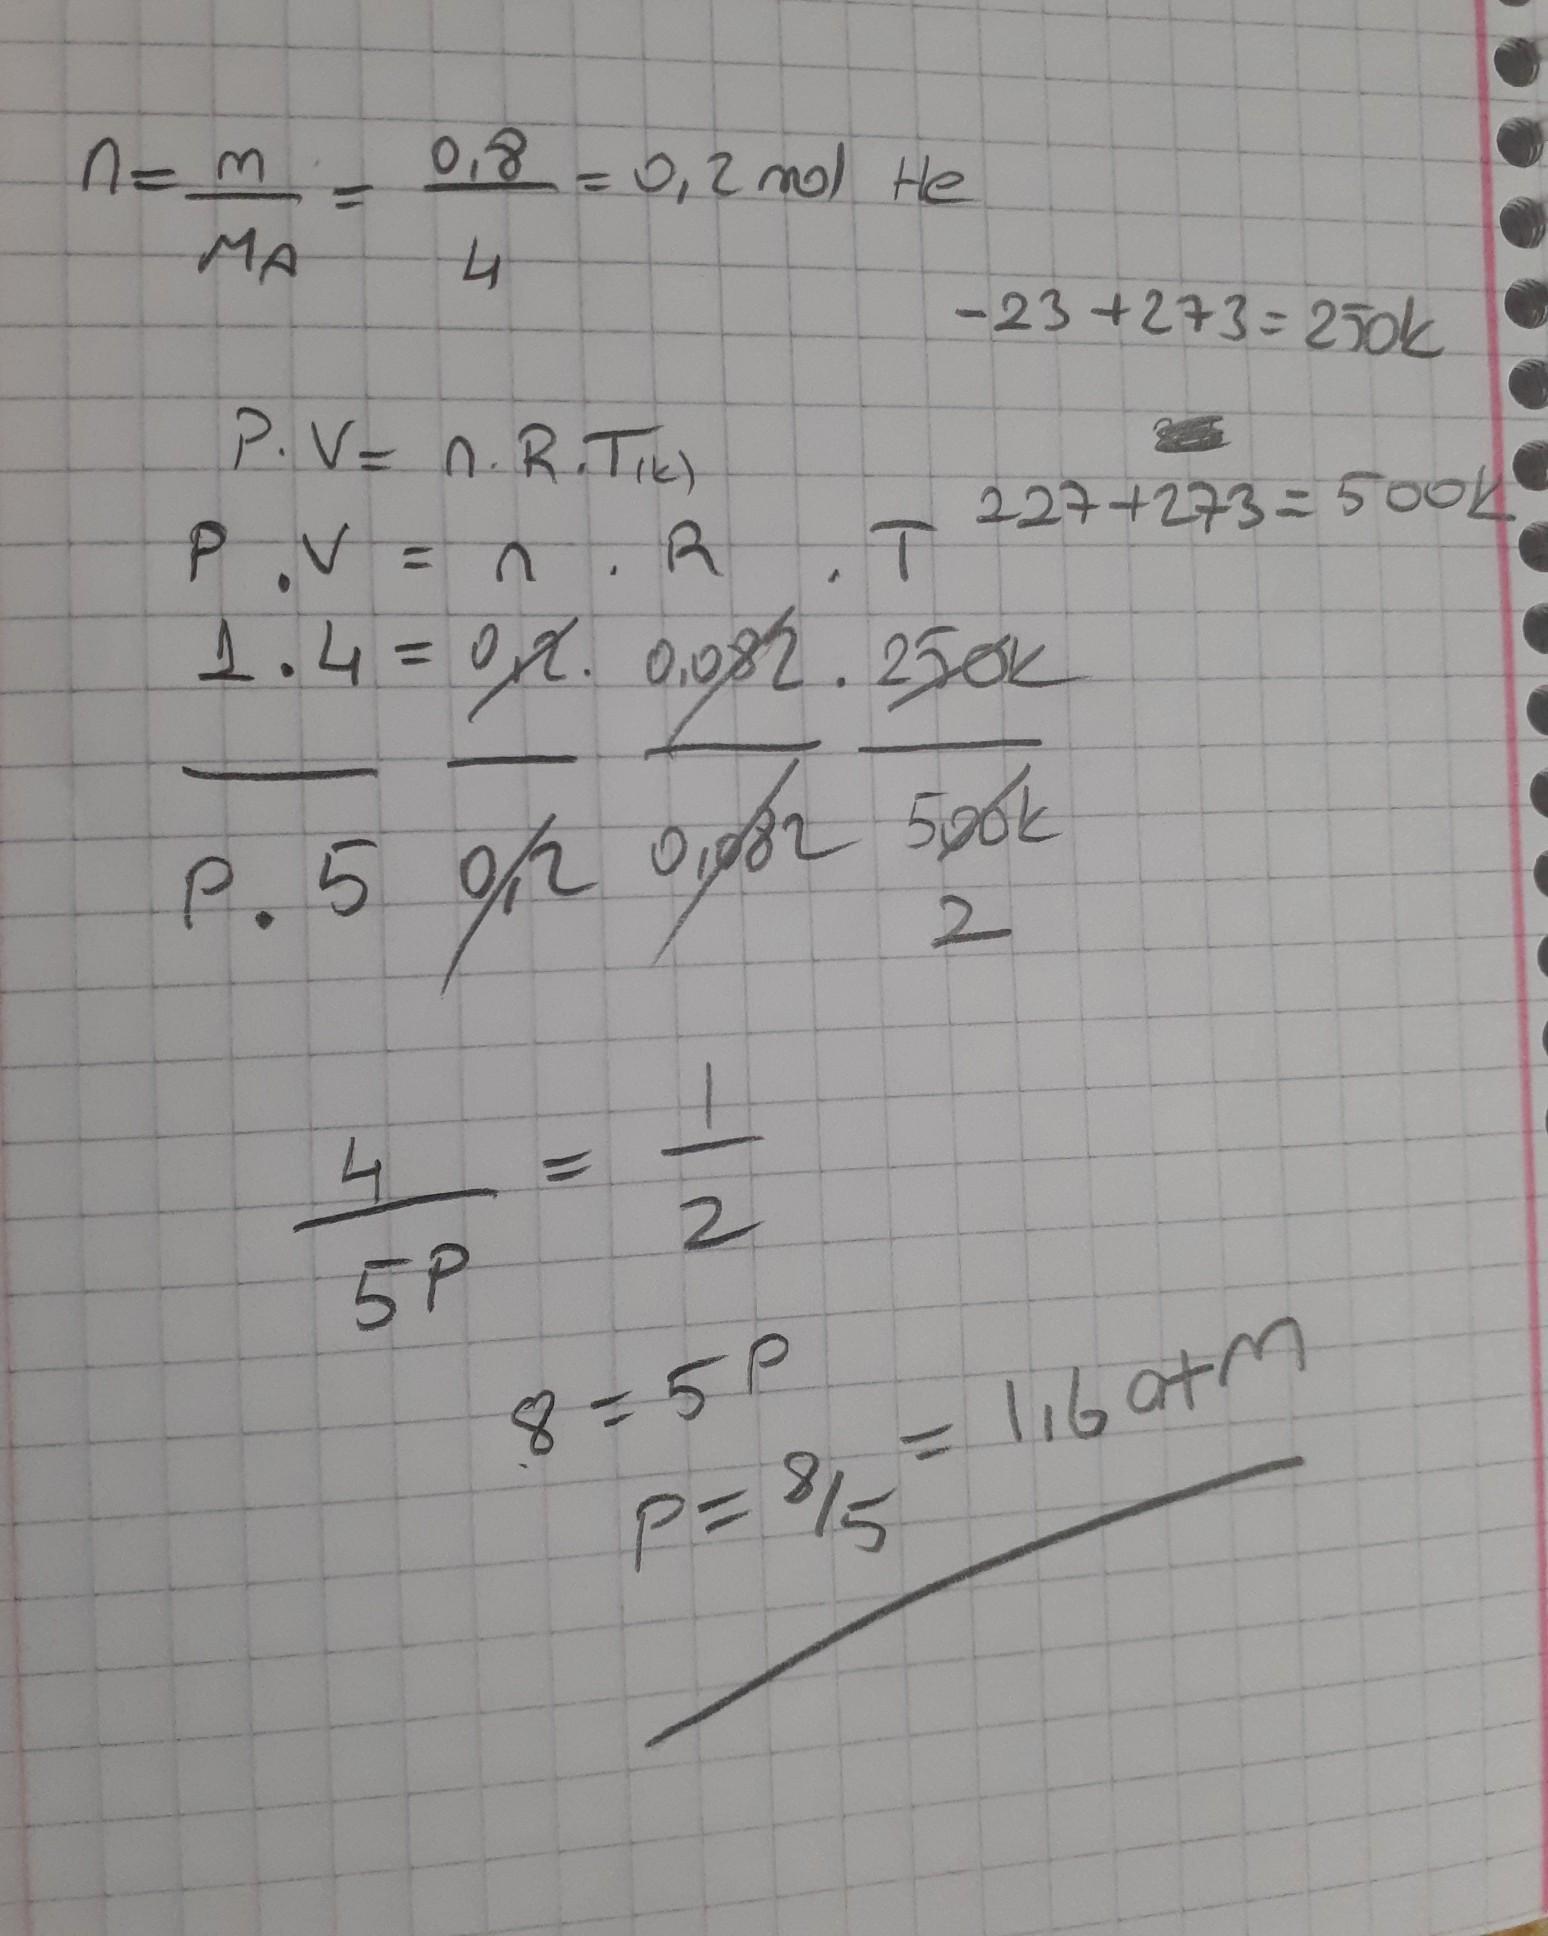 n = m / MA = 0,8 / 4 = 0,2 mol He
-23 + 273 = 250k
P. V = n. R. T(k)
227 + 273 = 500k
P . V = n . R . T
1 . 4 = 0,2 . 0,082 . 250k
P . 5 0,2 0,082 500k
2
4 / 5P = 1 / 2
8 = 5P
P = 8/5 = 1,6 atm